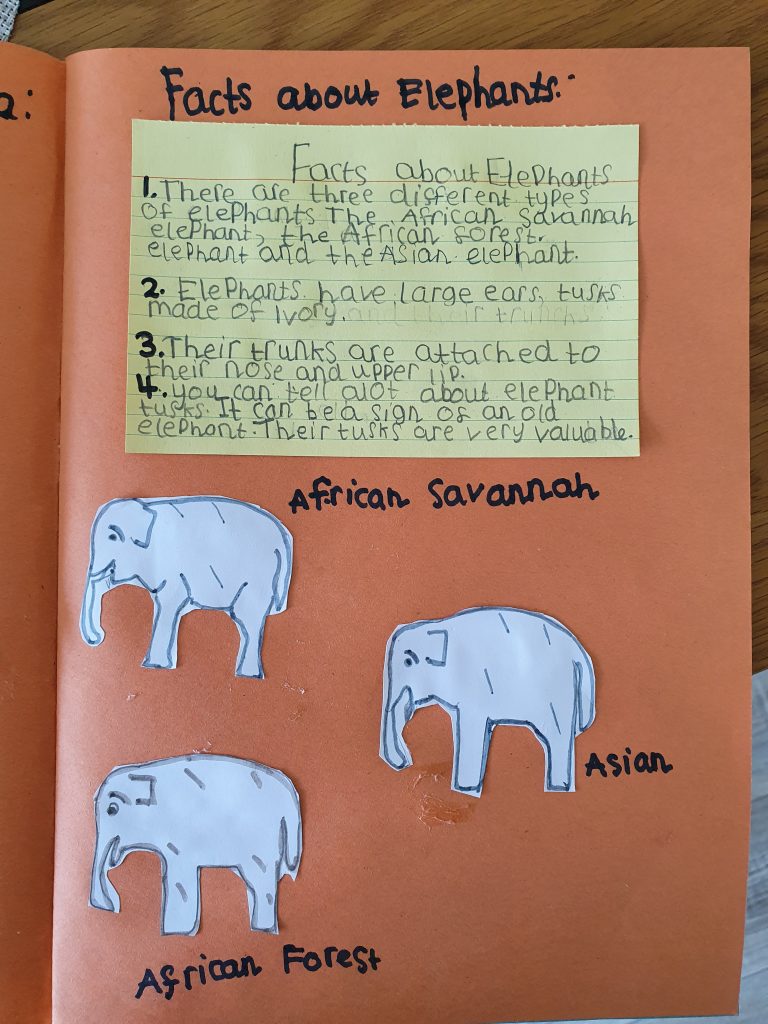 a:
Facts about Elephants:
Facts about Elephants
1. There are three different types
of elephants The African Savannah
elephant, the African forest.
elephant and the Asian elephant.
2. Elephants have large ears, tusks
made of Ivory. and their trunks.
3. Their trunks are attached to
their nose and upper lip.
4. you can tell alot about elephant
tusks. It can be a sign of an old
elephant. Their tusks are very valuable.
African Savannah
Asian
African Forest